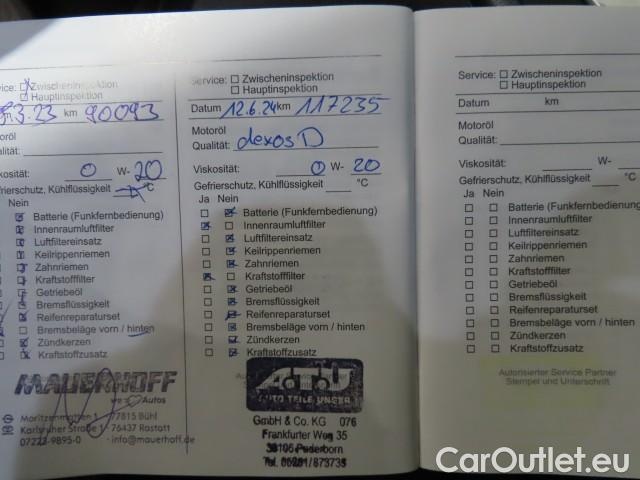 Service: ☐ Zwischeninspektion
☐ Hauptinspektion
3.23 km 90093
Motoröl
Qualität:
Viskosität: 0 W- 20
Gefrierschutz, Kühlflüssigkeit °C
Nein
Batterie (Funkfernbedienung)
Innenraumluftfilter
Luftfiltereinsatz
Keilrippenriemen
Zahnriemen
Kraftstofffilter
Getriebeöl
Bremsflüssigkeit
Reifenreparaturset
Bremsbeläge vorn / hinten
Zündkerzen
Kraftstoffzusatz
MAUERHOFF
Autos
Moritzenmatten 1 · 77815 Bühl
Karlsruher Straße 1 · 76437 Rastatt
07223-9895-0 · info@mauerhoff.de
Service: ☐ Zwischeninspektion
☐ Hauptinspektion
Datum 12.6.24 km 117235
Motoröl
Qualität: dexos D
Viskosität: 0 W- 20
Gefrierschutz, Kühlflüssigkeit °C
Ja Nein
Batterie (Funkfernbedienung)
Innenraumluftfilter
Luftfiltereinsatz
Keilrippenriemen
Zahnriemen
Kraftstofffilter
Getriebeöl
Bremsflüssigkeit
Reifenreparaturset
Bremsbeläge vorn / hinten
Zündkerzen
Kraftstoffzusatz
ATU
AUTO TEILE UNGER
GmbH & Co. KG 076
Frankfurter Weg 35
Paderborn
Tel. 05251/873735
Service: ☐ Zwischeninspektion
☐ Hauptinspektion
Datum km
Motoröl
Qualität:
Viskosität: W-
Gefrierschutz, Kühlflüssigkeit °C
Ja Nein
Batterie (Funkfernbedienung)
Innenraumluftfilter
Luftfiltereinsatz
Keilrippenriemen
Zahnriemen
Kraftstofffilter
Getriebeöl
Bremsflüssigkeit
Reifenreparaturset
Bremsbeläge vorn / hinten
Zündkerzen
Kraftstoffzusatz
Autorisierter Service Partner
Stempel und Unterschrift
CarOutlet.eu